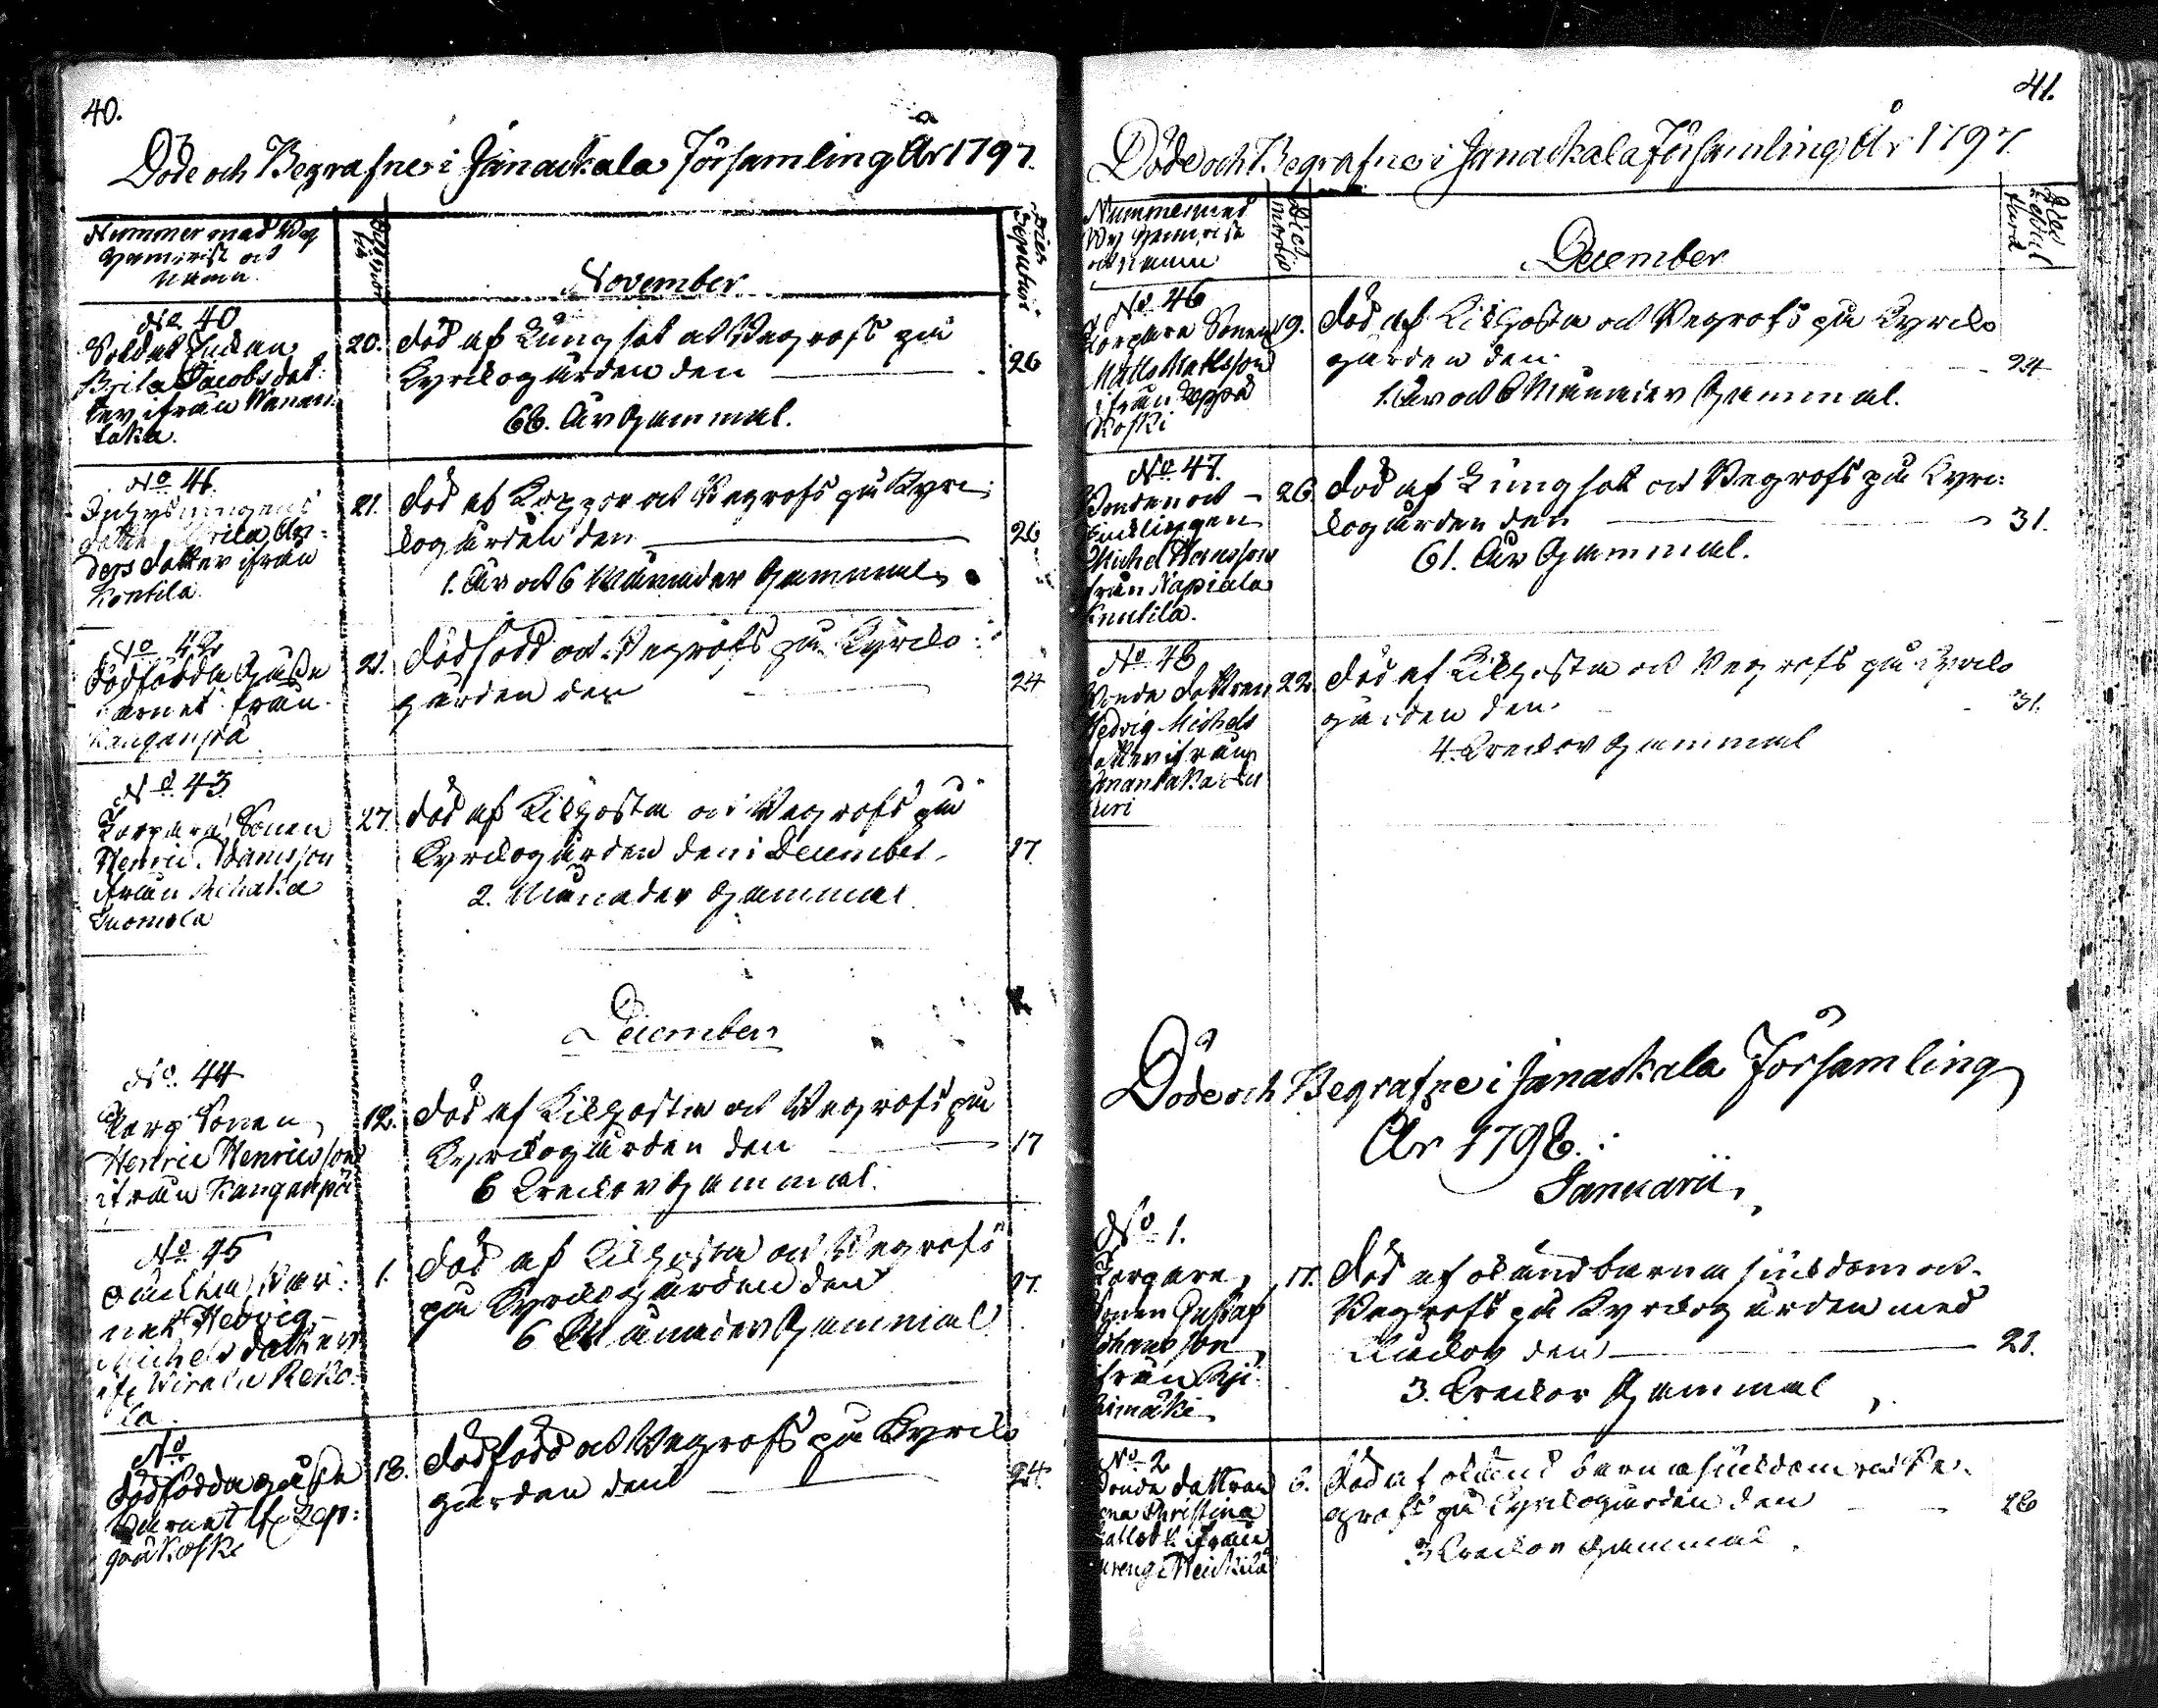 40.
Döde och Begrafne i Janackala Församling År 1797.
Nummer med
Hemvist och
Namn.
Dies
Sepulturæ
November
No 40
Soldat Enkan
Brita Jacobs dot:
ter ifrån Wanan:
taka.
20.
död af Lungsot och Begrofs på
Kyrckogården den
26
68. År Gammal.
No 41.
Brita An:
ders dotter ifrån
Kontila.
21.
död af Koppor och Begrofs på Kyrc:
kogården den
26
1. År och 6 Månader Gammal.
No 42
Dödfödda Gåsse
barnet från
Kanganpä
21.
dödfödd och Begrofs på Kyrcko:
gården den
24
No 43
Torpare Sonen
Henric Adamsson
ifrån
Tuomola
27.
död af Kikhosta och Begrofs på
Kyrckogården den i December
17.
2. Månader Gammal.
December
No. 44
Torp Sonen
Henric Henricsson
ifrån Kanganpä
12.
död af Kikhosta och Begrofs på
Kyrckogården den
17
6 Veckor Gammal.
No 45
Oäckta Bar:
net Hedvig
Michels datter
if. Wirala Reko:
la.
1.
död af Kikhosta och Begrofs
på Kyrckogården den
17.
6 Månader Gammal
No
Dödfödda gåsse
Barnet if. Lep:
päkoski
18.
dödfödd och Begrofs på Kyrcko
gården den
24.
41.
Döde och Begrafne i Janackala Församling År 1797.
Nummer med
Hemvist
och Namn
Dies
mortis
December
No 46
Torpare Sonen
Matts Mattsson
ifrån Leppä
Koski
19.
död af Kikhosta och Begrofs på Kyrcko
gården den
24
1. År och 6 Månader Gammal.
No 47.
Bonden och
Enklingen
Michel Hansson
från Napiala
Knutila.
26.
död af Lungsot och Begrofs på Kyrc:
kogården den
31.
61. År Gammal.
No 48
Bonde dottren
Hedvig Michels
dotter ifrån
22.
död af Kikhosta och Begrofs på Kyrcko
gården den
31.
4. Veckor Gammal
Döde och Begrafne i Janackala Församling
År 1798.
Januarii.
No 1.
Torpare
Sonen Gustaf
Johansson
ifrån
17.
död af okänd barna siukdom och
Begrofs på Kyrckogården med
Kläckor den
21.
3. Veckor Gammal
No 2
Bonde dottren
Christina
ifrån
Heickilä
6.
död af okänd barna siukdom och Be:
grofs på Kyrckogården den
28
3 Veckor Gammal.